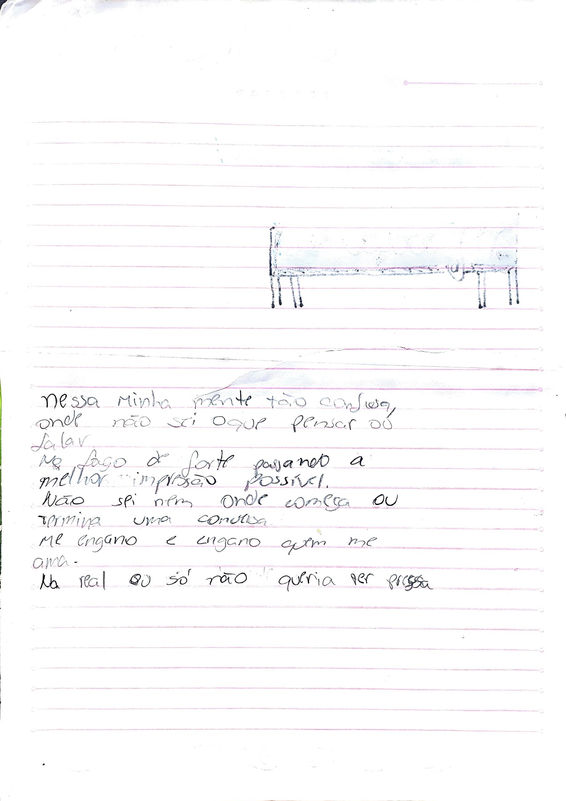 nessa minha mente tão confusa,
onde não sei oque pensar ou
falar
Me faço de forte passando a
melhor impressão possível.
Não sei nem onde começa ou
termina uma conversa
Me engano e engano quem me
ama.
Na real eu só não queria ser pressa